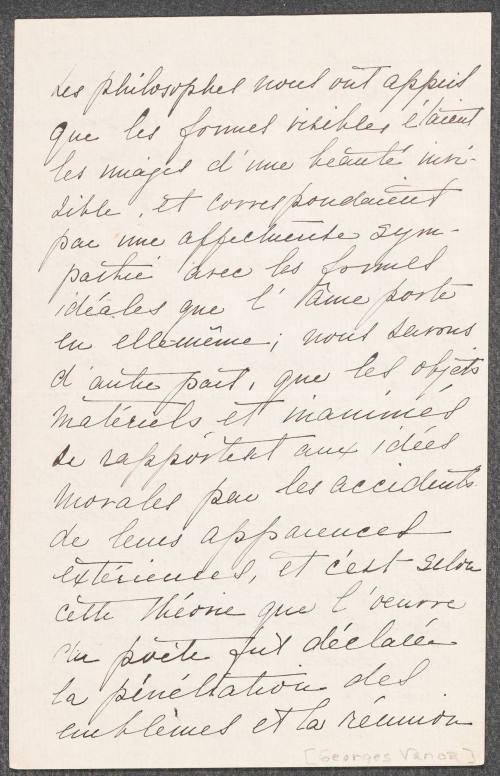 Les philosophes nous ont appris
que les formes visibles étaient
les images d'une beauté invi-
sible, et correspondaient
par une affectueuse sym-
pathie avec les formes
idéales que l'âme porte
en ellemême; nous savons
d'autre part, que les objets
matériels et inanimés
se rapportent aux idées
morales par les accidents
de leurs apparences
extérieures, et c'est selon
cette théorie que l'oeuvre
du poète fut déclarée
la pénétration des
emblèmes et la réunion
[Georges Vanor]